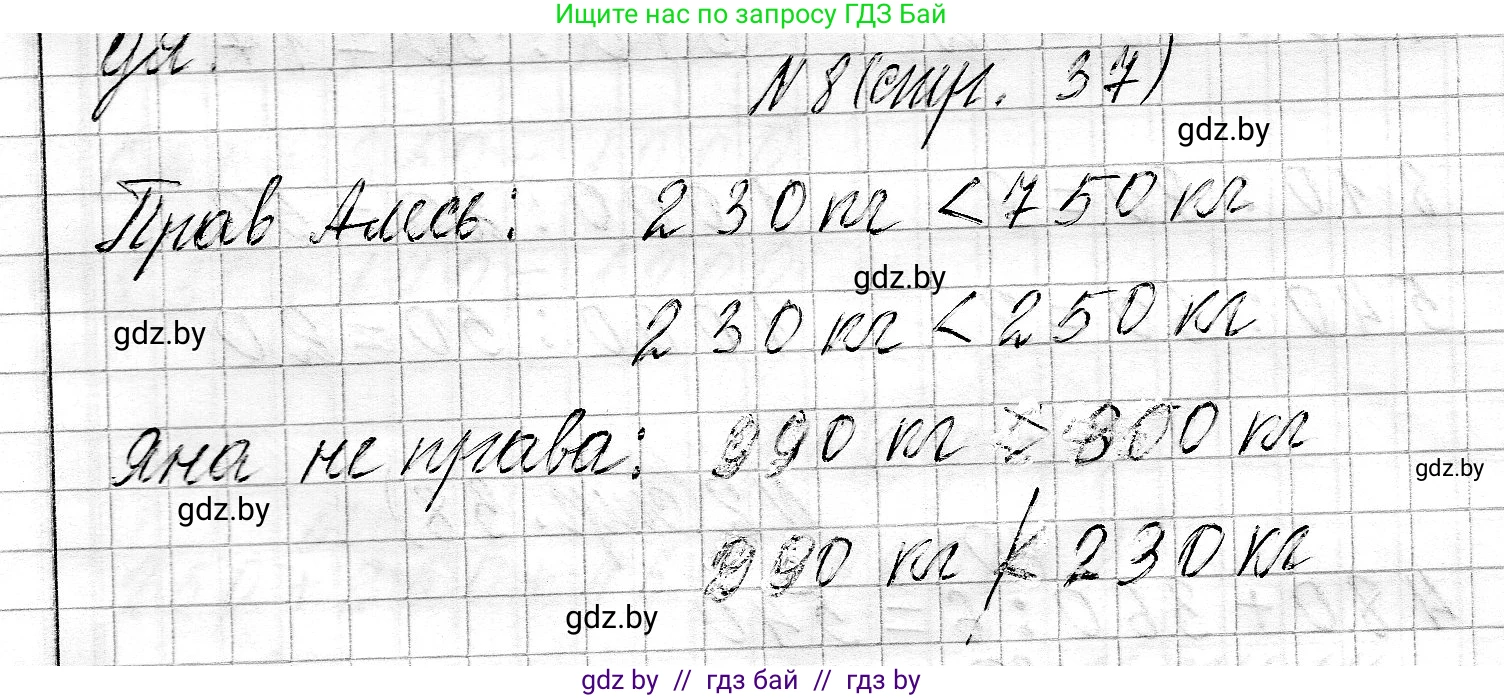 Ищите нас по запросу ГДЗ Бай
N 8 (стр. 37)
gdz.by
Прав Алесь: 230 кг < 750 кг
gdz.by
gdz.by
230 кг < 250 кг
Яна не права: 990 кг > 300 кг
gdz.by
gdz.by
990 кг ≮ 230 кг
gdz.by
gdz.by // гдз бай // гдз by